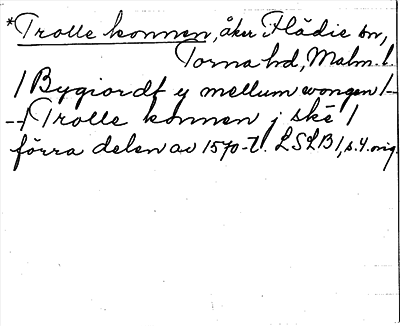 *Trolle konnen, åker Flädie sn,
Torna hd, Malm. l.
/ Bygiordt y mellum wongen /--
--/ Trolle konnen j ske /
förra delen av 1570-t. LSLB 1, s. 4. orig.